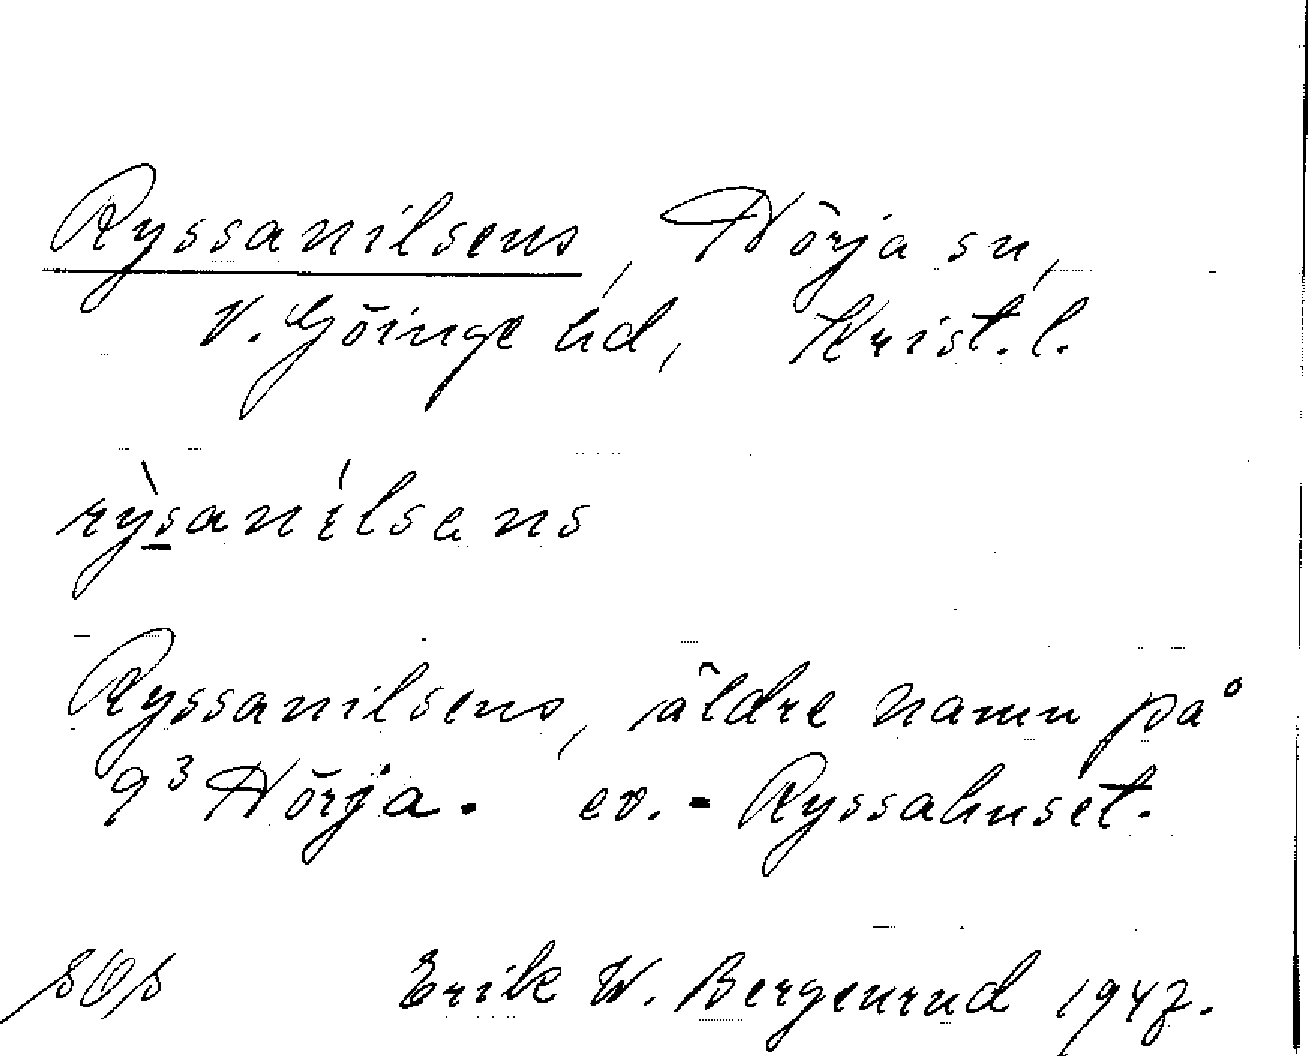 Ryssanilsens, Nörja sn,
V. Göinge hd, Krist. l.
rỳsanílsens
Ryssanilsens, äldre namn på
9³ Nörja. ev. = Ryssahuset.
SOS Erik W. Bergenrud 1947.